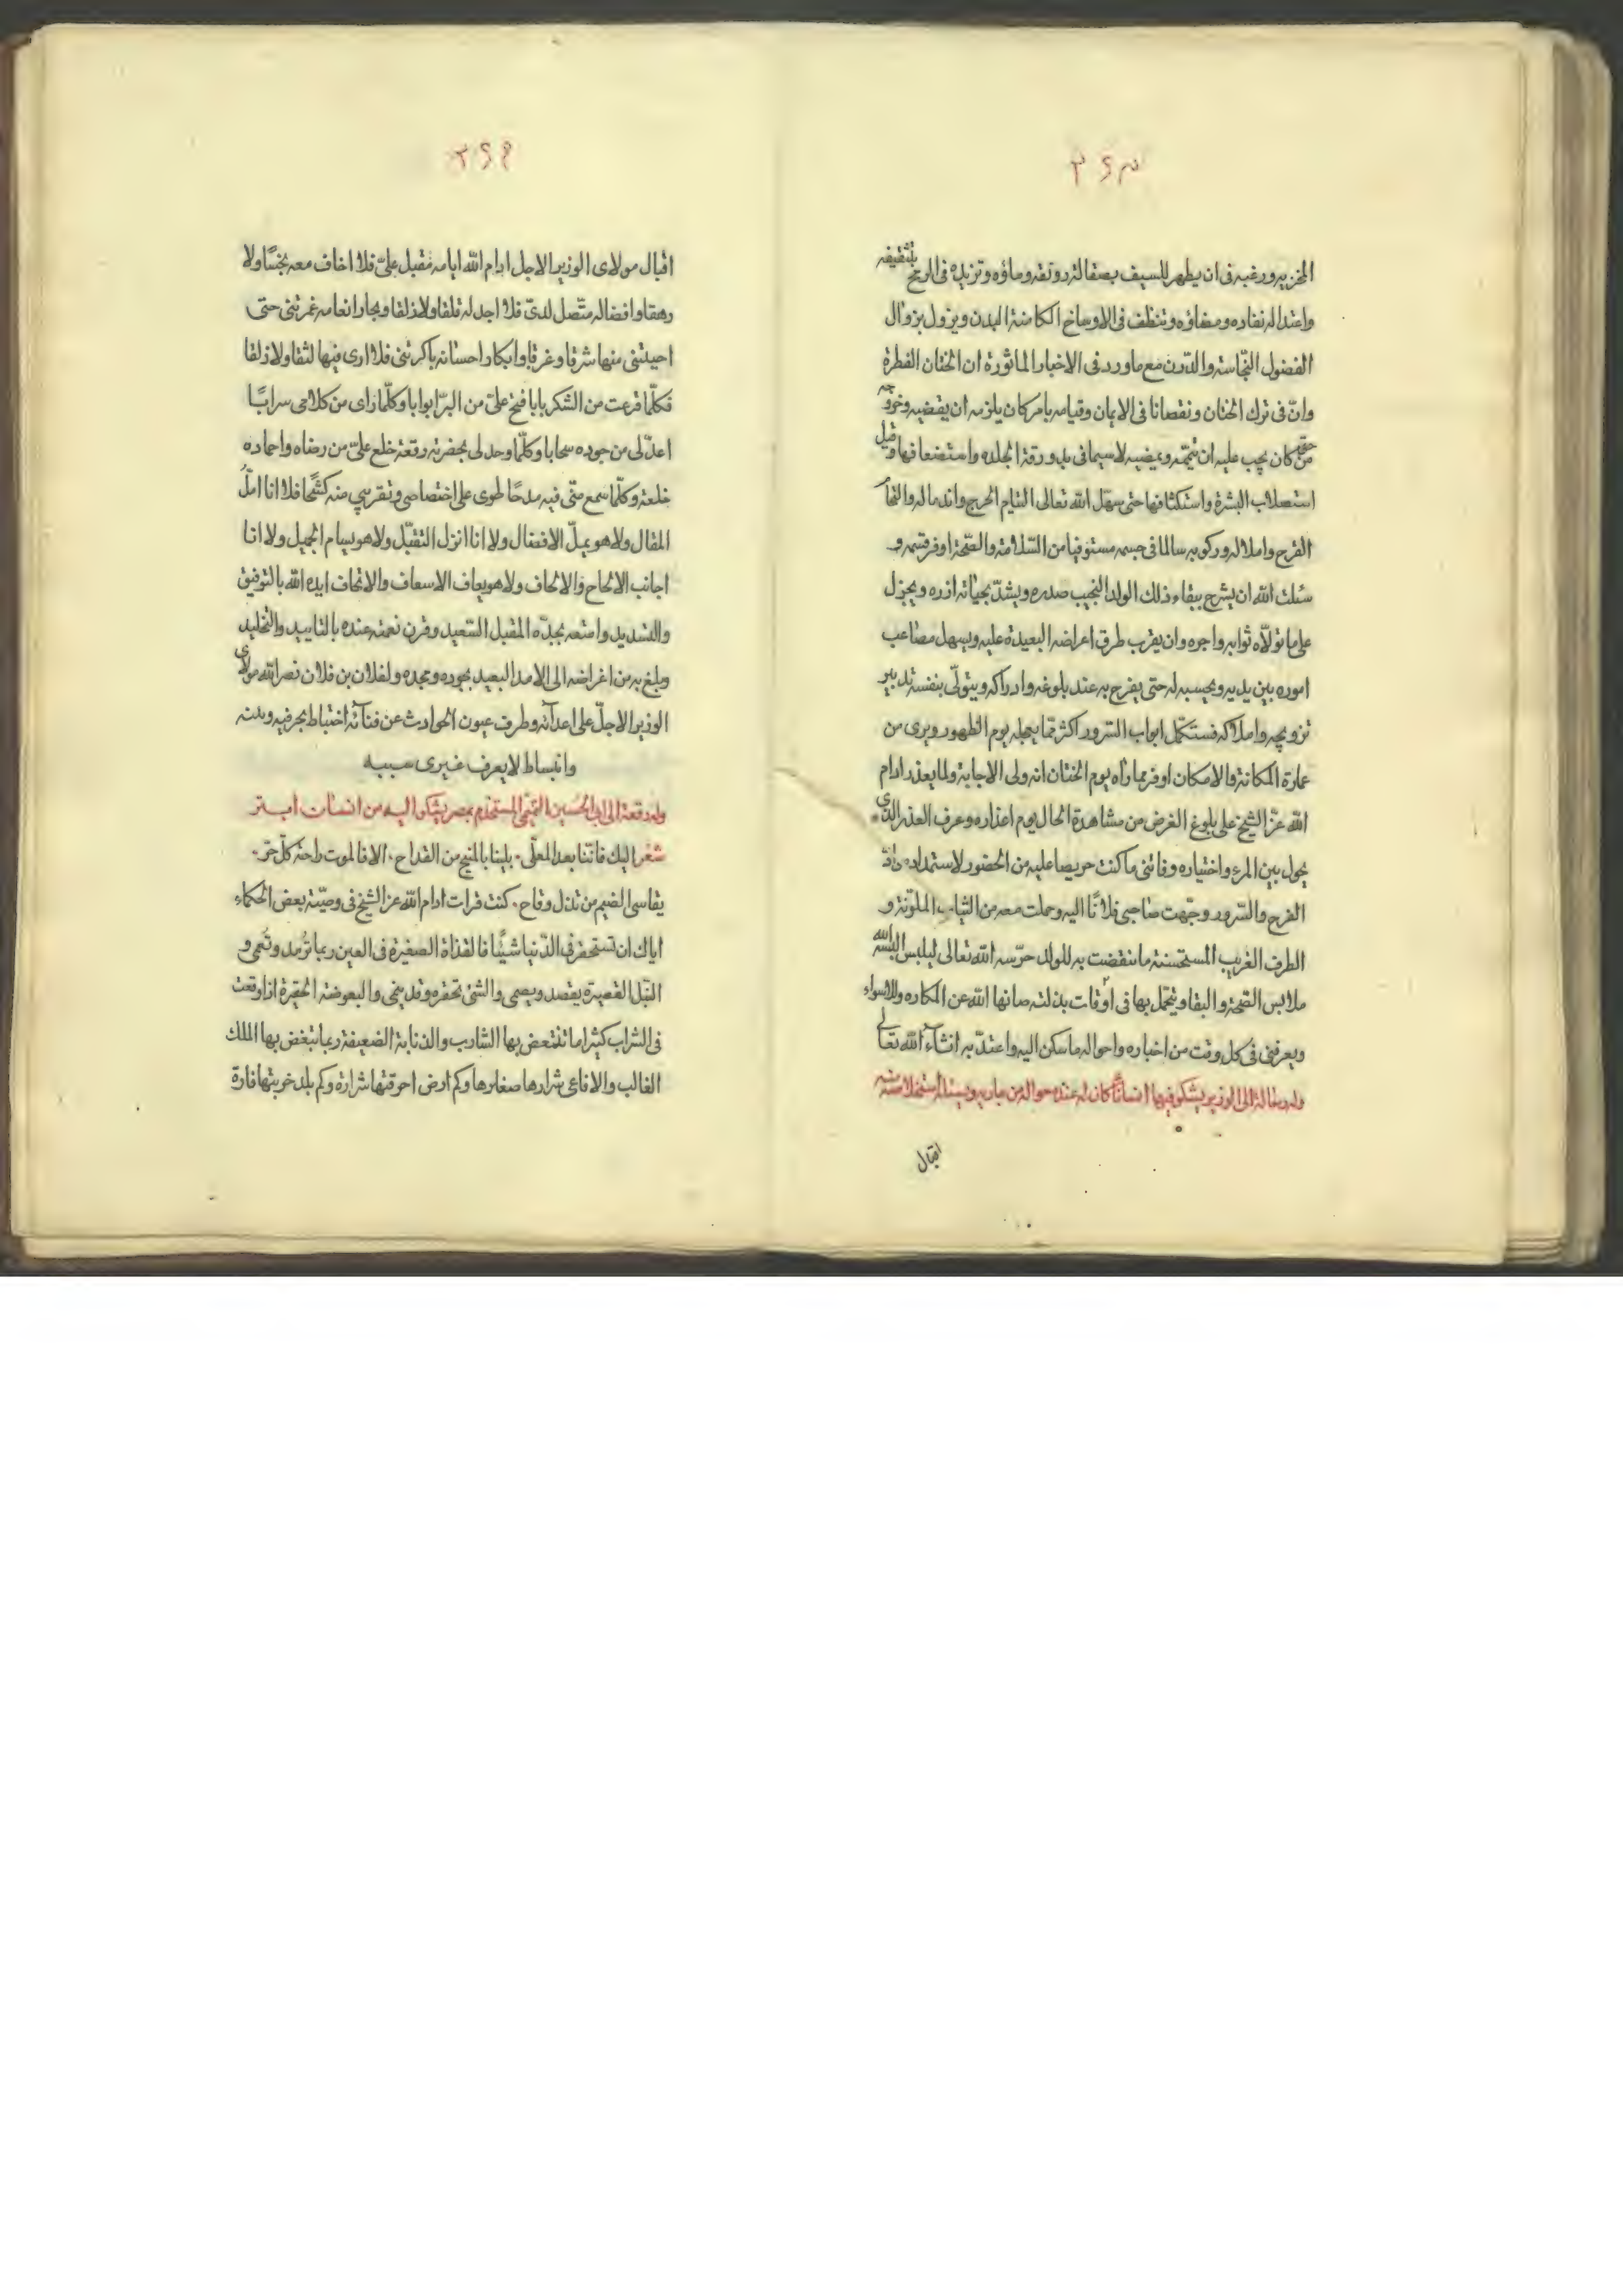 ٣٤٣
المخزيه ورغبه فى ان يظهر للسيف بصقالة رونقه وماؤه وتزيده فى الرمح بتثقيفه
واعتداله نفاده ومضاؤه وتنظف فى الاوساخ الكامنة البدن ويزول بزوال
الفضول النجاسة والدرن مع ما ورد فى الاخبار الماثورة ان الختان الفطرة
وانّ فى ترك الختان ونقصانا فى الايمان وقيامه بامر كان يلزمه ان يقضيه وخروجه
من حق كان يجب عليه ان يتمّه ويمضيه لاسيما فى بدو رقة الجلده واستضعافها وقبل
استصلاب البشرة واستكثافها حتى سهّل الله تعالى التيام الجرح واندماله والتحا
القرح واملاله وركوبه سالما فى جسمه مستوفيا من السّلامة والصّحة اوفر قسمه و
سئلت الله ان يشرح ببقاء ذلك الولد النجيب صدره ويشدّ بحياته ازره ويجزل
على ما تولّاه ثوابه واجره وان يقرب طرق اغراضه البعيدة عليه ويسهل مصاعب
اموره بين يديه ويحسبه له حتى يفرح به عند بلوغه وادراكه ويتولّى بنفسه تدبير
تزويجه واملاكه فستكمل ابواب السّرور اكثر ممّا يجمله يوم الطهور ويرى من
عمارة المكانة والامكان اوفر مما رآه يوم الختان انه ولى الاجابة ولما يعذر ادام
الله عزّ الشيخ على بلوغ الغرض من مشاهدة الحال يوم اعذاره وعرف العذر الذى
يحول بين المرء واختياره وفاتنى ما كنت حريصا عليه من الحضور لاستمداده مادّة
الفرح والسّرور وجّهت صاحبى فلانًا اليه وحملت معه من الثياب الملوّنة و
الطرف الغريب المستحسنة ما نقضت به للولد حرّسه الله تعالى ليلبس البسه الله
ملابس الصّحة والبقا ويتجمّل بها فى اوقات بذلته صانها الله عن المكاره والاسواء
ويعرفنى فى كل وقت من اخباره واحواله ما سكن اليه واعتدّ به انشاء الله تعالى
وله رسالة الى الوزير يشكو فيها انسانًا كان له عنده حوالة من مباريه ويسئله استخلاصه منه
اقبال
٣٤٤
اقبال مولاى الوزير الاجل ادام الله ايامه مقبل علىّ فلا اخاف معه بخسًا ولا
رهقا وافضاله متّصل لدىّ فلا اجد له قلقا ولا زلقا وبحار انعامه غمرتنى حتى
احيتنى منها شرقا وغرقا وابكار احسانه باكرتنى فلا ارى فيها لثقا ولا زلقا
فكلّما قرعت من الشكر بابا فتح علىّ من البرّ ابوابا وكلّما راى من كلامى سرابًا
اعدّ لى من جوده سحابا وكلّما وجد لى بحضرته رقعة خلع علىّ من رضاه واحماده
خلعة وكلّما سمع منّى فيه مدحًا طوى على اختصاصى وتقريبى منه كشحًا فلا انا املّ
المقال ولا هو يملّ الافضال ولا انا انزل التقبّل ولا هو يسام الجميل ولا انا
اجانب الالحاح والالحاف ولا هو يعاف الاسعاف والاتحاف ايده الله بالتوفيق
والتسديد وامتعه بجدّه المقبل السّعيد وقرن نعمته عنده بالتاييد والتخليد
وبلغ به من اغراضه الى الامد البعيد بجوده ومجده ولفلان بن فلان نصر الله مولاى
الوزير الاجلّ على اعدائه وطرف عيون الحوادث عن فنائه اختباط بحرفيه وبدنه
وانبساط لا يعرف غيرى سببه
وله رقعة الى ابى الحسين القمّى المستخدم بمصر يشكو اليه من انسان ابتر
شعر اليك فاتنا بعد المعلّى ٠ بلينا بالمنيح من القداح ٠ الا فالموت راحة كلّ حرّ ٠
يقاسى الضيم من نذل وقاح ٠ كنت قرات ادام الله عز الشيخ فى وصيّة بعض الحكماء
اياك ان تستحقر فى الدّنيا شيئًا فالقذاة الصغيرة فى العين ربما تُرمد وتُعمى و
النبل القصيرة يقصد ويصمى والشئ تحقره وقد ينمى والبعوضة الحقيرة اذا وقعت
فى الشراب كثيرا ما تمتعض بها الشارب والذنابة الضعيفة ربما تبغض بها الملك
الغالب والافاعى شرارها صغارها وكم ارض احرقتها شرارة وكم بلد خربتها فارة